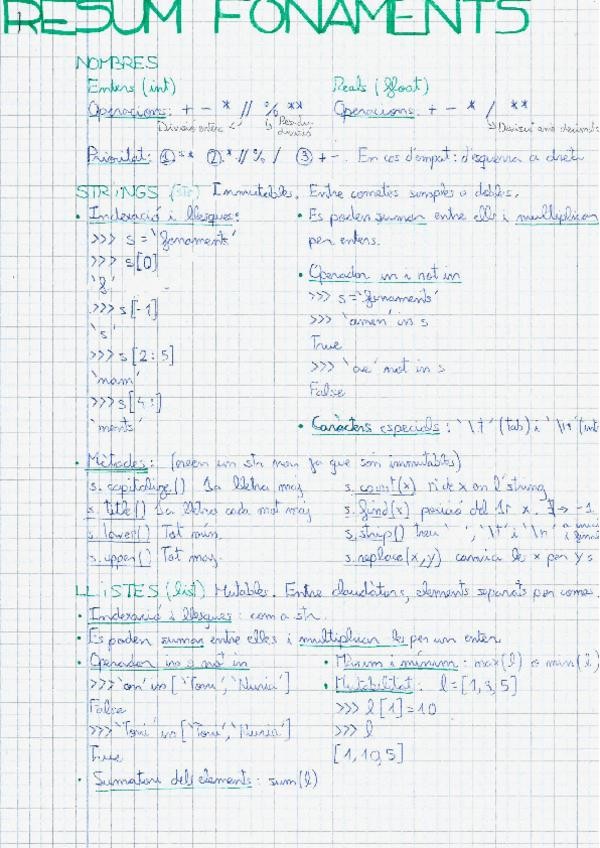 RESUM FONAMENTS
NOMBRES
Enters (int)
Reals (float)
Operacions: + - * // % **
Operacions: + - * / **
Divisió entera
Residu divisió
Divisió amb decimals
Prioritat: ① ** ② * // % / ③ + - . En cas d'empat: d'esquerra a dreta
STRINGS (str) Immutables. Entre cometes simples o dobles.
• Indexació i llesques:
>>> s = 'fonaments'
>>> s[0]
'f'
>>> s[-1]
's'
>>> s[2:5]
'nam'
>>> s[4:]
'ments'
• Es poden sumar entre ells i multiplicar
per enters.
• Operador in i not in
>>> s = 'fonaments'
>>> 'amen' in s
True
>>> 'ae' not in s
False
• Caràcters especials: '\t' (tab) i '\n' (int
• Mètodes: (creen un str nou ja que són immutables)
s.capitalize() 1a lletra maj
s.title() 1a lletra cada mot maj
s.lower() Tot min.
s.upper() Tot maj.
s.count(x) nº de x en l'string
s.find(x) posició del 1r x. → -1
s.strip() treu ' ', '\t' i '\n' a
s.replace(x,y) canvia les x per y s
LLISTES (list) Mutables. Entre claudàtors, elements separats per coma.
• Indexació i llesques: com a str.
• Es poden sumar entre elles i multiplicar les per un enter
• Operador in o not in
>>> 'on' in ['Toni', 'Núria']
False
>>> 'Toni' in ['Toni', 'Núria']
True
• Sumatori dels elements: sum(l)
• Màxim i mínim: max(l) o min(l)
• Mutabilitat: l = [1,3,5]
>>> l[1] = 10
>>> l
[1,10,5]